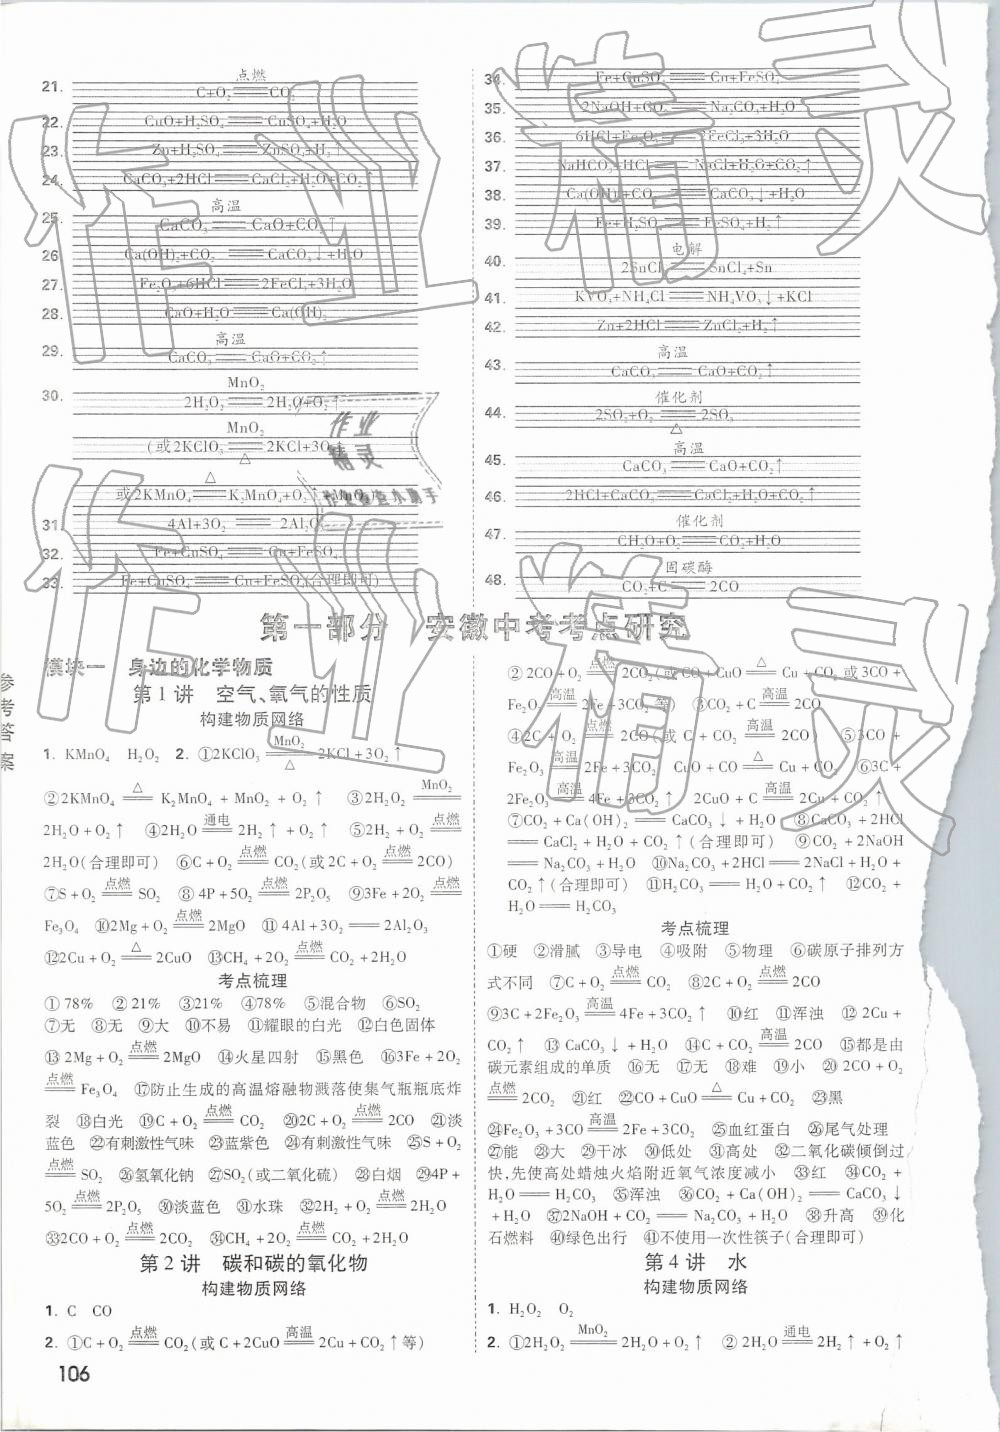 21. C+O₂ 点燃═ CO₂
22. CuO+H₂SO₄═CuSO₄+H₂O
23. Zn+H₂SO₄═ZnSO₄+H₂↑
24. CaCO₃+2HCl═CaCl₂+H₂O+CO₂↑
25. CaCO₃ 高温═ CaO+CO₂↑
26. Ca(OH)₂+CO₂═CaCO₃↓+H₂O
27. Fe₂O₃+6HCl═2FeCl₃+3H₂O
28. CaO+H₂O═Ca(OH)₂
29. CaCO₃ 高温═ CaO+CO₂↑
30. 2H₂O₂ MnO₂═ 2H₂O+O₂↑
(或2KClO₃ MnO₂═△ 2KCl+3O₂↑
或2KMnO₄ △═ K₂MnO₄+O₂↑+MnO₂
31. 4Al+3O₂═2Al₂O₃
32. Fe+CuSO₄═Cu+FeSO₄
33. Fe+CuSO₄═Cu+FeSO₄(合理即可)
34. Fe+CuSO₄═Cu+FeSO₄
35. 2NaOH+CO₂═Na₂CO₃+H₂O
36. 6HCl+Fe₂O₃═2FeCl₃+3H₂O
37. NaHCO₃+HCl═NaCl+H₂O+CO₂↑
38. Ca(OH)₂+CO₂═CaCO₃↓+H₂O
39. Fe+H₂SO₄═FeSO₄+H₂↑
40. 2SnCl₂ 电解═ SnCl₄+Sn
41. KVO₃+NH₄Cl═NH₄VO₃↓+KCl
42. Zn+2HCl═ZnCl₂+H₂↑
43. CaCO₃ 高温═ CaO+CO₂↑
44. 2SO₂+O₂ 催化剂═△ 2SO₃
45. CaCO₃ 高温═ CaO+CO₂↑
46. 2HCl+CaCO₃═CaCl₂+H₂O+CO₂↑
47. CH₂O+O₂ 催化剂═ CO₂+H₂O
48. CO₂+C 固碳酶═ 2CO
第一部分 安徽中考考点研究
模块一 身边的化学物质
第1讲 空气、氧气的性质
构建物质网络
1. KMnO₄ H₂O₂ 2. ①2KClO₃ MnO₂═△ 2KCl+3O₂↑
②2KMnO₄ △═ K₂MnO₄+MnO₂+O₂↑ ③2H₂O₂ MnO₂═
2H₂O+O₂↑ ④2H₂O 通电═ 2H₂↑+O₂↑ ⑤2H₂+O₂ 点燃═
2H₂O(合理即可) ⑥C+O₂ 点燃═ CO₂(或2C+O₂ 点燃═ 2CO)
⑦S+O₂ 点燃═ SO₂ ⑧4P+5O₂ 点燃═ 2P₂O₅ ⑨3Fe+2O₂ 点燃═
Fe₃O₄ ⑩2Mg+O₂ 点燃═ 2MgO ⑪4Al+3O₂═2Al₂O₃
⑫2Cu+O₂ △═ 2CuO ⑬CH₄+2O₂ 点燃═ CO₂+2H₂O
考点梳理
①78% ②21% ③21% ④78% ⑤混合物 ⑥SO₂
⑦无 ⑧无 ⑨大 ⑩不易 ⑪耀眼的白光 ⑫白色固体
⑬2Mg+O₂ 点燃═ 2MgO ⑭火星四射 ⑮黑色 ⑯3Fe+2O₂
点燃═ Fe₃O₄ ⑰防止生成的高温熔融物溅落使集气瓶瓶底炸
裂 ⑱白光 ⑲C+O₂ 点燃═ CO₂ ⑳2C+O₂ 点燃═ 2CO ㉑淡
蓝色 ㉒有刺激性气味 ㉓蓝紫色 ㉔有刺激性气味 ㉕S+O₂
点燃═ SO₂ ㉖氢氧化钠 ㉗SO₂(或二氧化硫) ㉘白烟 ㉙4P+
5O₂ 点燃═ 2P₂O₅ ㉚淡蓝色 ㉛水珠 ㉜2H₂+O₂ 点燃═ 2H₂O
㉝2CO+O₂ 点燃═ 2CO₂ ㉞CH₄+2O₂ 点燃═ CO₂+2H₂O
第2讲 碳和碳的氧化物
构建物质网络
1. C CO
2. ①C+O₂ 点燃═ CO₂(或C+2CuO 高温═ 2Cu+CO₂↑等)
②2CO+O₂ 点燃═ 2CO₂(或CO+CuO △═ Cu+CO₂或3CO+
Fe₂O₃ 高温═ 2Fe+3CO₂等) ③CO₂+C 高温═ 2CO
④2C+O₂ 点燃═ 2CO(或C+CO₂ 高温═ 2CO) ⑤3CO+
Fe₂O₃ 高温═ 2Fe+3CO₂ CuO+CO △═ Cu+CO₂ ⑥3C+
2Fe₂O₃ 高温═ 4Fe+3CO₂↑ 2CuO+C 高温═ 2Cu+CO₂↑
⑦CO₂+Ca(OH)₂═CaCO₃↓+H₂O ⑧CaCO₃+2HCl
═CaCl₂+H₂O+CO₂↑(合理即可) ⑨CO₂+2NaOH
═Na₂CO₃+H₂O ⑩Na₂CO₃+2HCl═2NaCl+H₂O+
CO₂↑(合理即可) ⑪H₂CO₃═H₂O+CO₂↑ ⑫CO₂+
H₂O═H₂CO₃
考点梳理
①硬 ②滑腻 ③导电 ④吸附 ⑤物理 ⑥碳原子排列方
式不同 ⑦C+O₂ 点燃═ CO₂ ⑧2C+O₂ 点燃═ 2CO
⑨3C+2Fe₂O₃ 高温═ 4Fe+3CO₂↑ ⑩红 ⑪浑浊 ⑫2Cu+
CO₂↑ ⑬CaCO₃↓+H₂O ⑭C+CO₂ 高温═ 2CO ⑮都是由
碳元素组成的单质 ⑯无 ⑰无 ⑱难 ⑲小 ⑳2CO+O₂
点燃═ 2CO₂ ㉑红 ㉒CO+CuO △═ Cu+CO₂ ㉓黑
㉔Fe₂O₃+3CO 高温═ 2Fe+3CO₂ ㉕血红蛋白 ㉖尾气处理
㉗能 ㉘大 ㉙干冰 ㉚低处 ㉛高处 ㉜二氧化碳倾倒过
快,先使高处蜡烛火焰附近氧气浓度减小 ㉝红 ㉞CO₂+
H₂O═H₂CO₃ ㉟浑浊 ㊱CO₂+Ca(OH)₂═CaCO₃↓
+H₂O ㊲2NaOH+CO₂═Na₂CO₃+H₂O ㊳升高 ㊴化
石燃料 ㊵绿色出行 ㊶不使用一次性筷子(合理即可)
第4讲 水
构建物质网络
1. H₂O₂ O₂
2. ①2H₂O₂ MnO₂═ 2H₂O+O₂↑ ②2H₂O 通电═ 2H₂↑+O₂↑
参考答案
106
作业精灵
作业精灵
作业
精灵